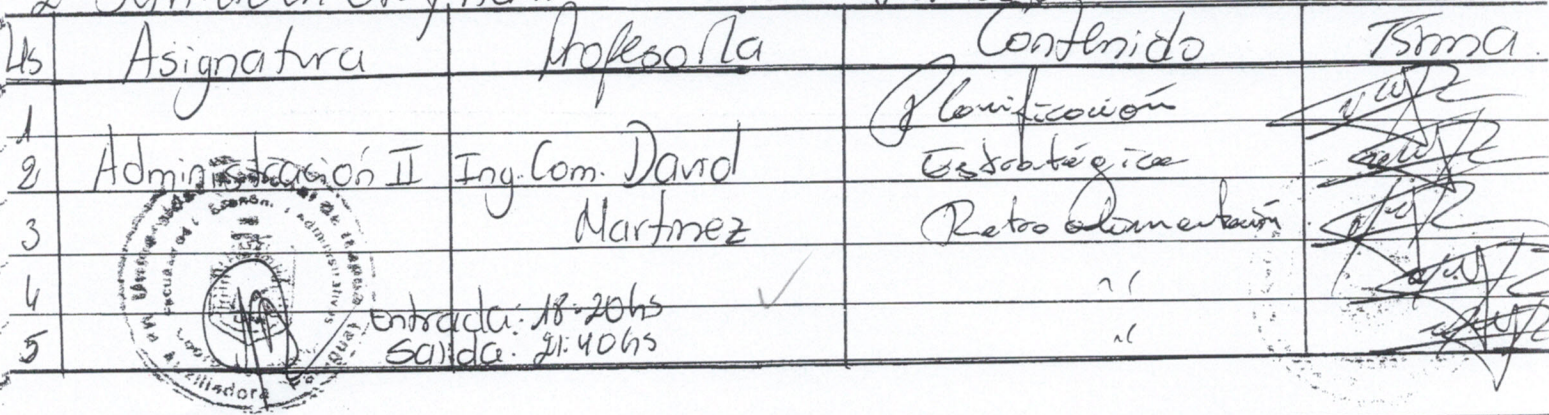 Hs Asignatura Profesor/la Contenido Firma
1 Planificación
2 Administración II Ing. Com. David Estratégica
3 Martínez Retro alimentación
4 "
entrada: 18-20hs
5 "
Salida: 21:40hs